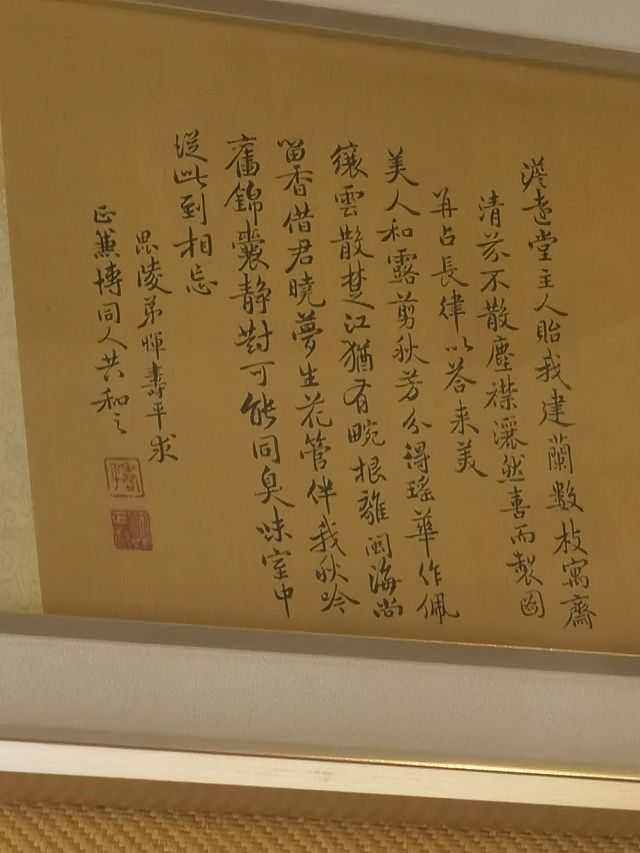 澹遠堂主人貽我建蘭數枝寓齋
清芬不散塵襟灑然喜而製圖
并占長律以答来美
美人和露剪秋芳分得瑤華作佩
纕雲散楚江猶有畹根離閩海尚
留香借君曉夢生花管伴我秋吟
舊錦囊靜對可能同臭味室中
從此到相忘
毘陵弟惲壽平求
正蕙博同人共和之